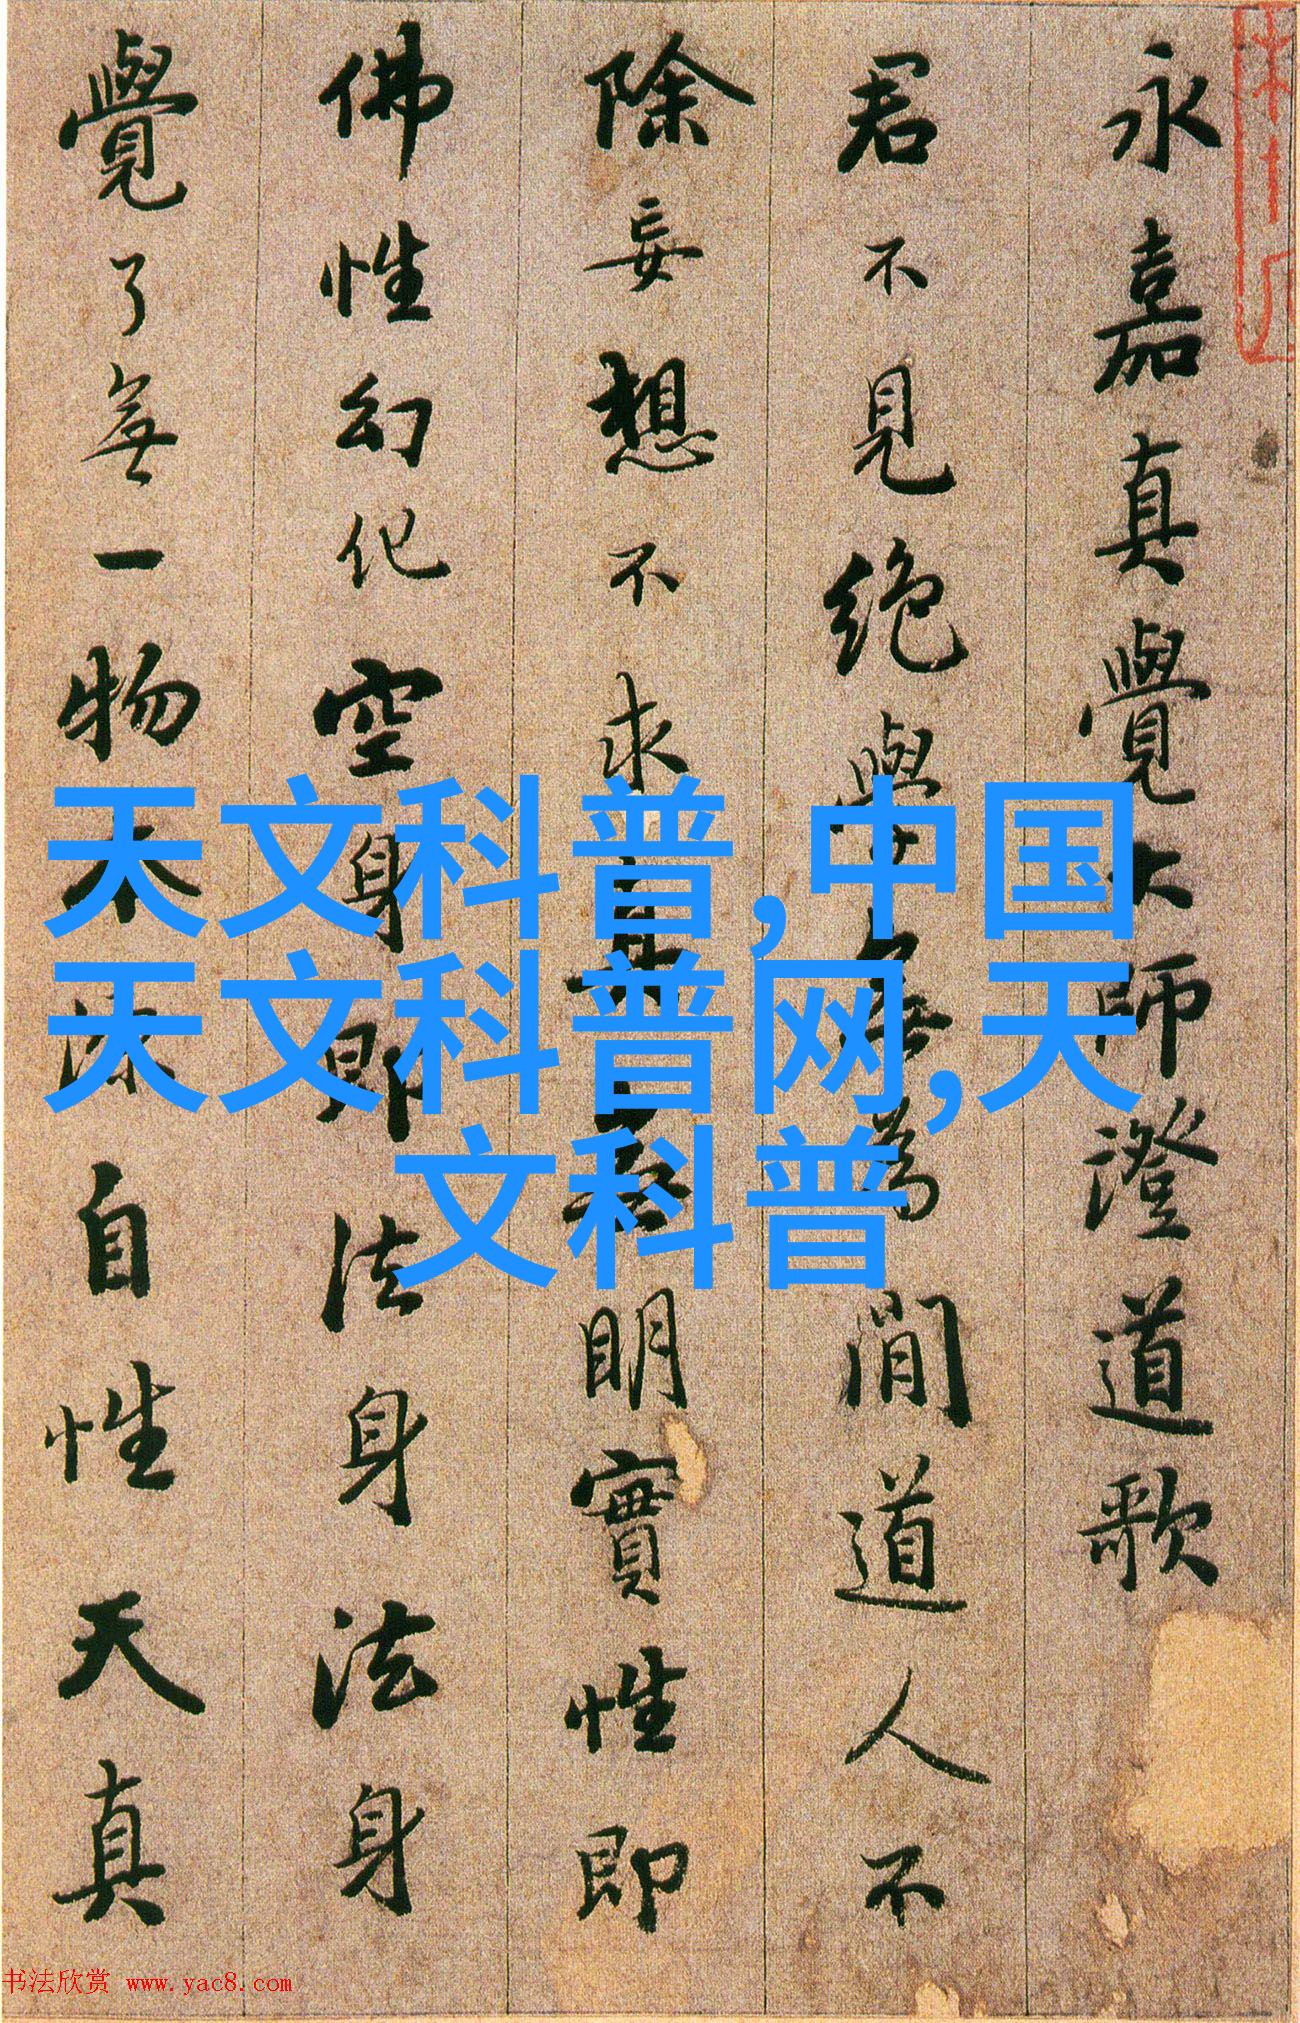 永嘉真覺大師澄道歌
君不見絶學無為閒道人不
除妄想不求真無明實性即
佛性幻化空身即法身法身
覺了無一物本源自性天真
天文科普,中国
天文科普网,天
文科普
书法欣赏 www.yac8.com